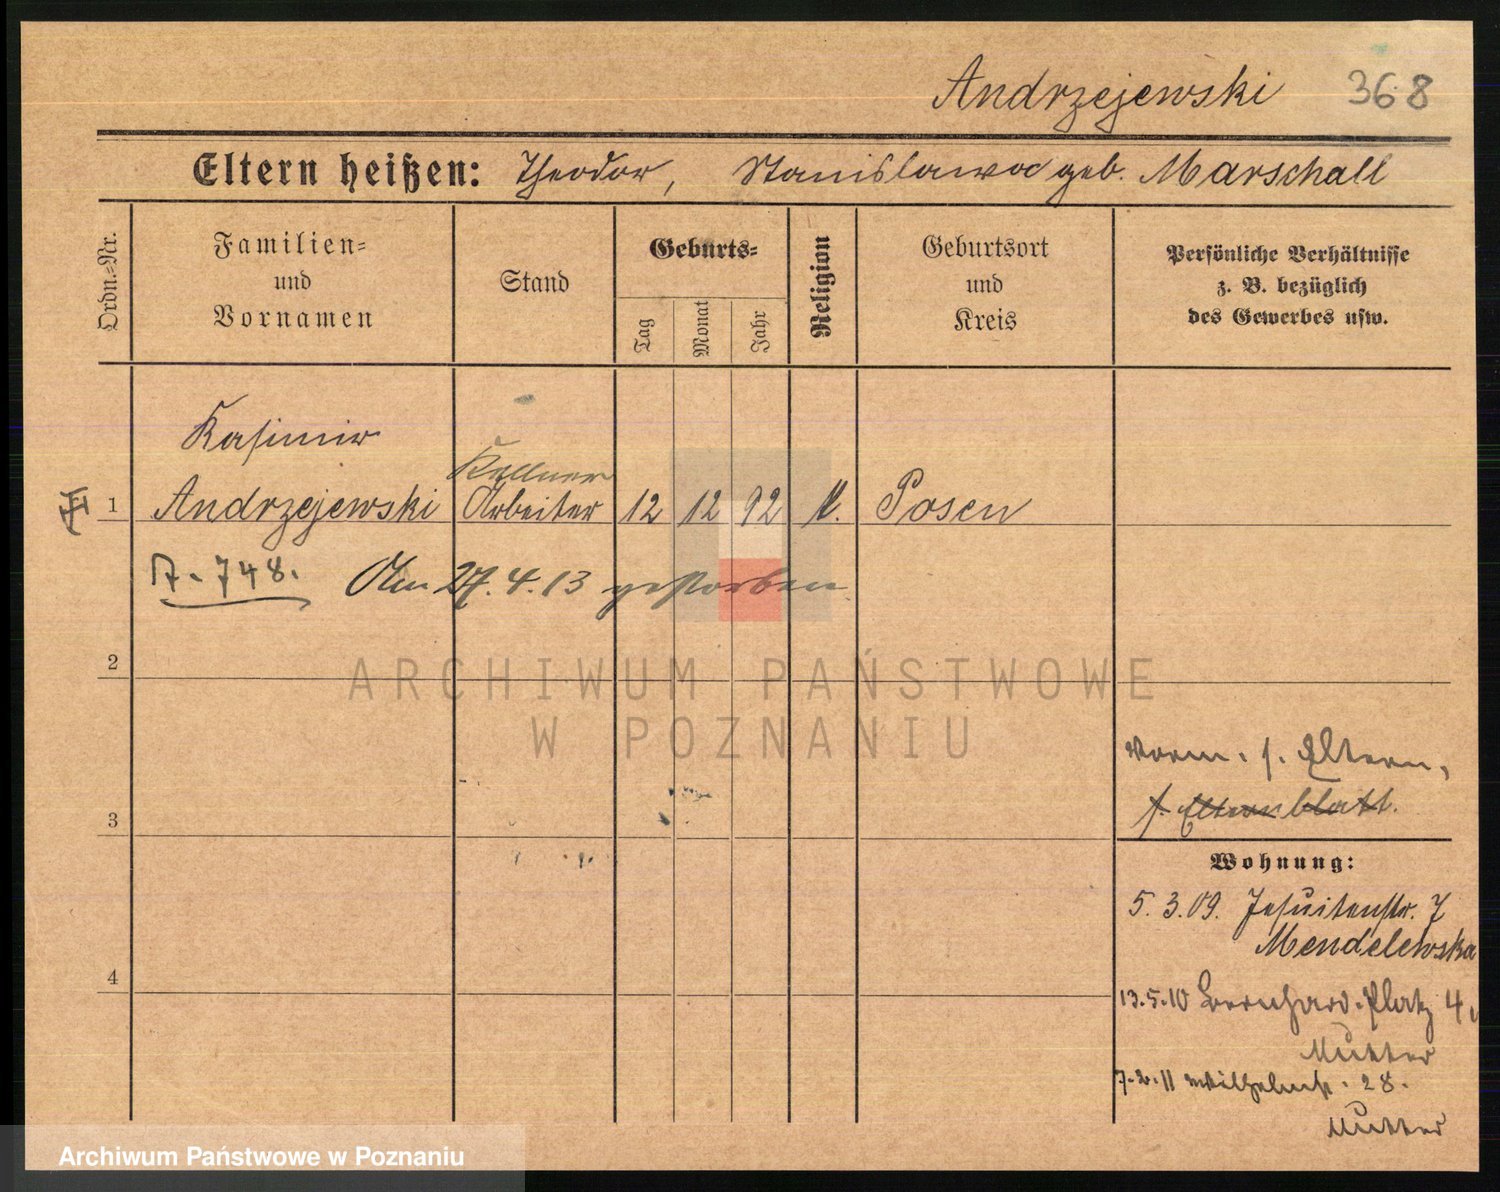 Andrzejewski 368
Eltern heißen: Theodor, Stanislawa geb. Marschall
Ordn.=Nr.
Familien=
und
Vornamen
Stand
Geburts=
Tag
Monat
Jahr
Religion
Geburtsort
und
Kreis
Persönliche Verhältnisse
z. B. bezüglich
des Gewerbes usw.
Kasimir
Kellner
1 Andrzejewski Arbeiter 12 12 92 k. Posen
A. 748. Am 27.4.13 gestorben.
2
ARCHIWUM PAŃSTWOWE
W POZNANIU
vorm. s. Eltern,
s. Elternblatt.
3
Wohnung:
5.3.09. Jesuitenstr. 7
Mendelewska
4
13.5.10 Bernhard.Platz 4,
Mutter
7.2.11 Wilhelmst. 28.
Mutter
Archiwum Państwowe w Poznaniu